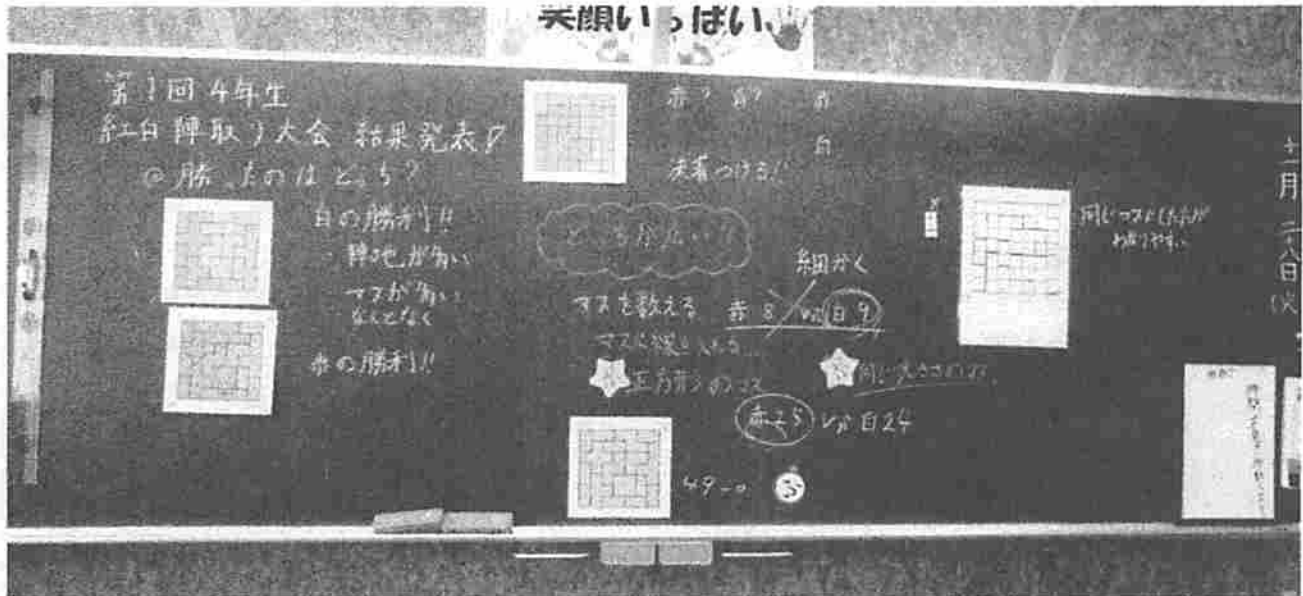 笑顔いっぱい
第1回 4年生
紅白陣取り大会 結果発表
◎勝ったのはどっち?
白の勝利!!
陣地が多い
マスが多い
なんとなく
赤の勝利!!
赤? 白?
赤
白
決着つける!
どちらが広い?
細かく
マスを数える 赤8 vs 白9
正方形のマス
同じ大きさの
赤25 vs 白24
49
同じマスにした方が
わかりやすい
十一月二八日(火